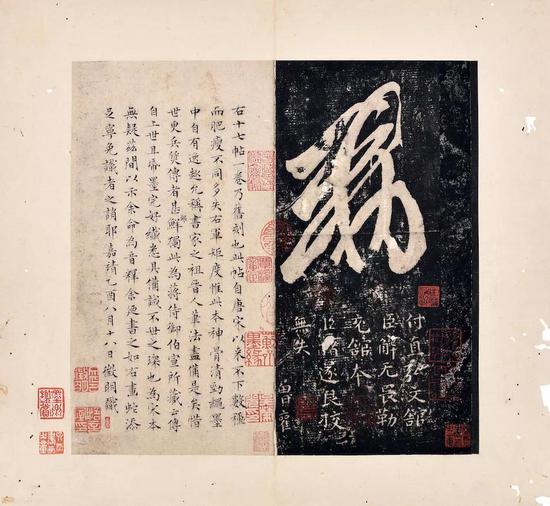 敕
付直弘文舘
臣解无畏勒
充舘本
臣褚遂良校
無失
右十七帖一卷乃舊刻也此帖自唐宋以來不下數種
而肥瘦不同多失右軍矩度惟此本神骨清勁繩墨
中自有逸趣允稱書家之祖晉人筆法盡備是矣惜
世更兵燹傳者甚鮮獨此為蔣侍御伯宣所藏正傳
自上世且帋墨完好纖悉具備誠不世之琛也為宋本
無疑茲間以示余命為音釋余廼書之如右畫蛇添
足寧免識者之誚耶嘉靖乙酉八月十八日徵明識